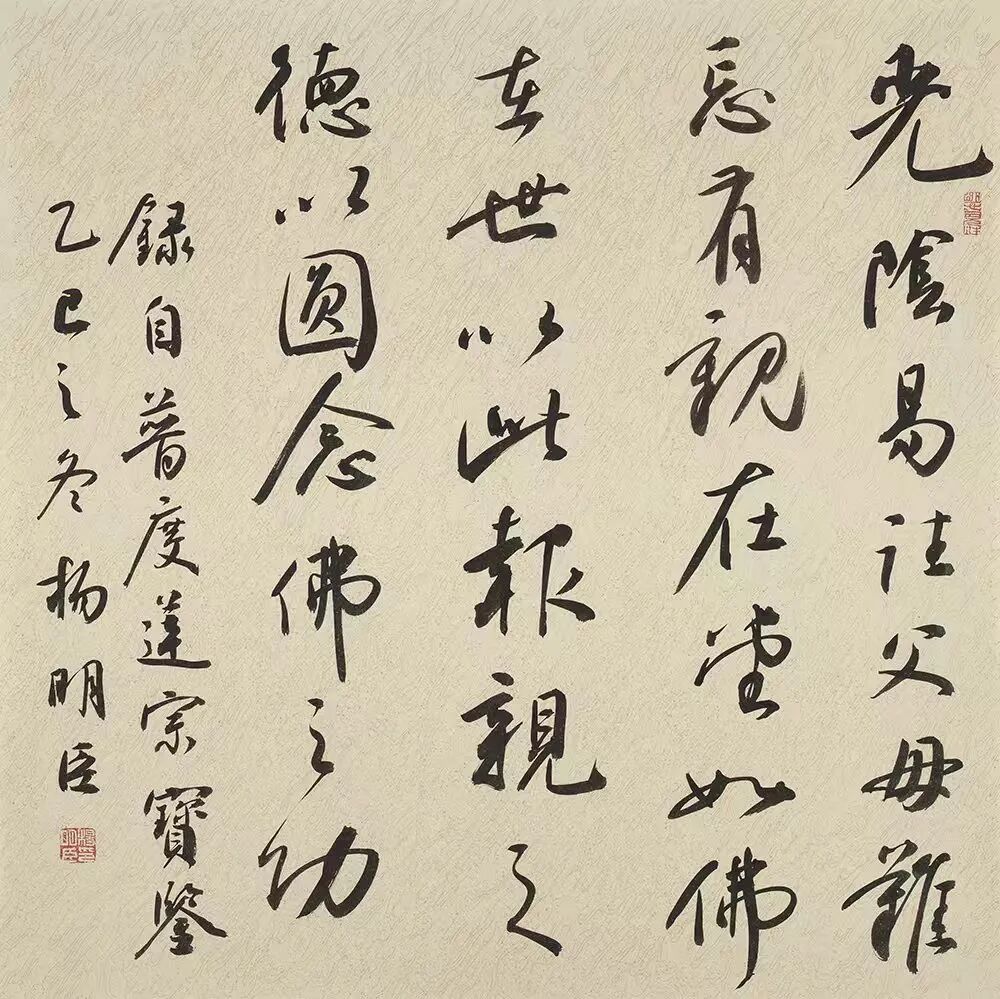 光陰易往父母難
忘有親在堂如佛
在世以此報親之
德以圆念佛之功
録自普度蓮宗寶鑒
乙巳之冬杨明臣